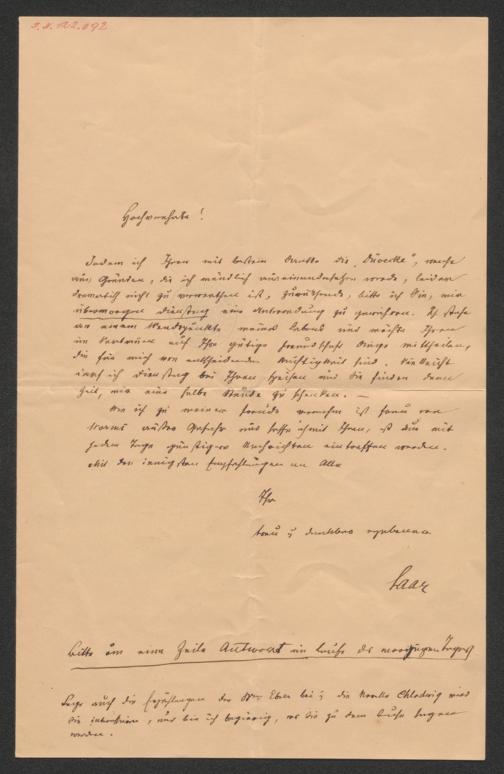 I.N. 122.892
Hochverehrte!
Indem ich Ihnen mit bestem Danke die „Duvecke", welche
aus Gründen, die ich mündlich auseinandersetzen werde, leider
dramatisch nicht zu verwerthen ist, zurücksende, bitte ich Sie, mir
übermorgen Dienstag eine Unterredung zu gewähren. Ich stehe
an einem Wendepunkte meines Lebens und möchte Ihnen
im Vertrauen auf Ihre gütige Freundschaft Dinge mittheilen,
die für mich von entscheidender Wichtigkeit sind. Vielleicht
darf ich Dienstag bei Ihnen speisen und Sie finden dann
Zeit, mir eine halbe Stunde zu schenken. —
Wie ich zu meiner Freude vernehme ist Frau von
außer Gefahr und hoffe ich mit Ihnen, daß nun mit
jedem Tage günstigere Nachrichten eintreffen werden.
Mit den innigsten Empfehlungen an Alle
Ihr
treu u dankbar ergebener
Saar
Bitte um eine Zeile Antwort im Laufe des morgigen Tages!
Lege auch die Erzählungen der Ebner bei; die Novelle Chlodwig wird
Sie interessiren, und bin ich begierig, was Sie zu dem Buche sagen
werden.